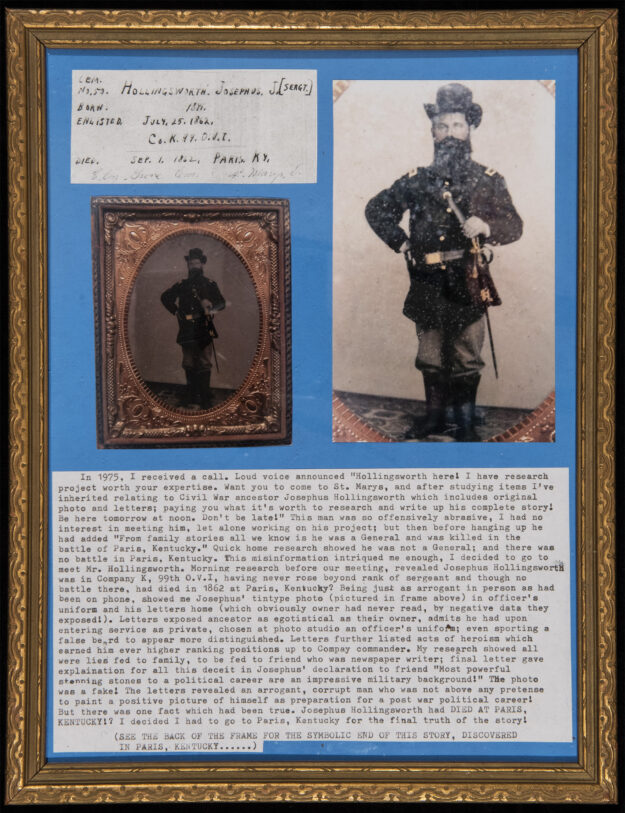 CEM.
NO. 50. HOLLINGSWORTH. JOSEPHUS, J. [SERGT.]
BORN.
ENLISTED JULY. 25. 1862.
Co. K. 99. O.V.I.
DIED. SEP. 1. 1862, PARIS. KY.
In 1975, I received a call. Loud voice announced "Hollingsworth here! I have research
project worth your expertise. Want you to come to St. Marys, and after studying items I've
inherited relating to Civil War ancestor Josephus Hollingsworth which includes original
photo and letters; paying you what it's worth to research and write up his complete story!
Be here tomorrow at noon. Don't be late!" This man was so offensively abrasive, I had no
interest in meeting him, let alone working on his project; but then before hanging up he
had added "From family stories all we know is he was a General and was killed in the
battle of Paris, Kentucky." Quick home research showed he was not a General; and there was
no battle in Paris, Kentucky. This misinformation intriqued me enough, I decided to go to
meet Mr. Hollingsworth. Morning research before our meeting, revealed Josephus Hollingsworth
was in Company K, 99th O.V.I, having never rose beyond rank of sergeant and though no
battle there, had died in 1862 at Paris, Kentucky? Being just as arrogant in person as had
been on phone, showed me Josephus' tintype photo (pictured in frame above) in officer's
uniform and his letters home (which obviously owner had never read, by negative data they
exposed!). Letters exposed ancestor as egotistical as their owner, admits he had upon
entering service as private, chosen at photo studio an officer's uniform; even sporting a
false beard to appear more distinguished. Letters further listed acts of heroism which
earned him ever higher ranking positions up to Compay commander. My research showed all
were lies fed to family, to be fed to friend who was newspaper writer; final letter gave
explaination for all this deceit in Josephus' declaration to friend "Most powerful
stepping stones to a political career are an impressive military background!" The photo
was a fake! The letters revealed an arrogant, corrupt man who was not above any pretense
to paint a positive picture of himself as preparation for a post war political career!
But there was one fact which had been true. Josephus Hollingsworth had DIED AT PARIS,
KENTUCKY!? I decided I had to go to Paris, Kentucky for the final truth of the story!
(SEE THE BACK OF THE FRAME FOR THE SYMBOLIC END OF THIS STORY, DISCOVERED
IN PARIS, KENTUCKY......)